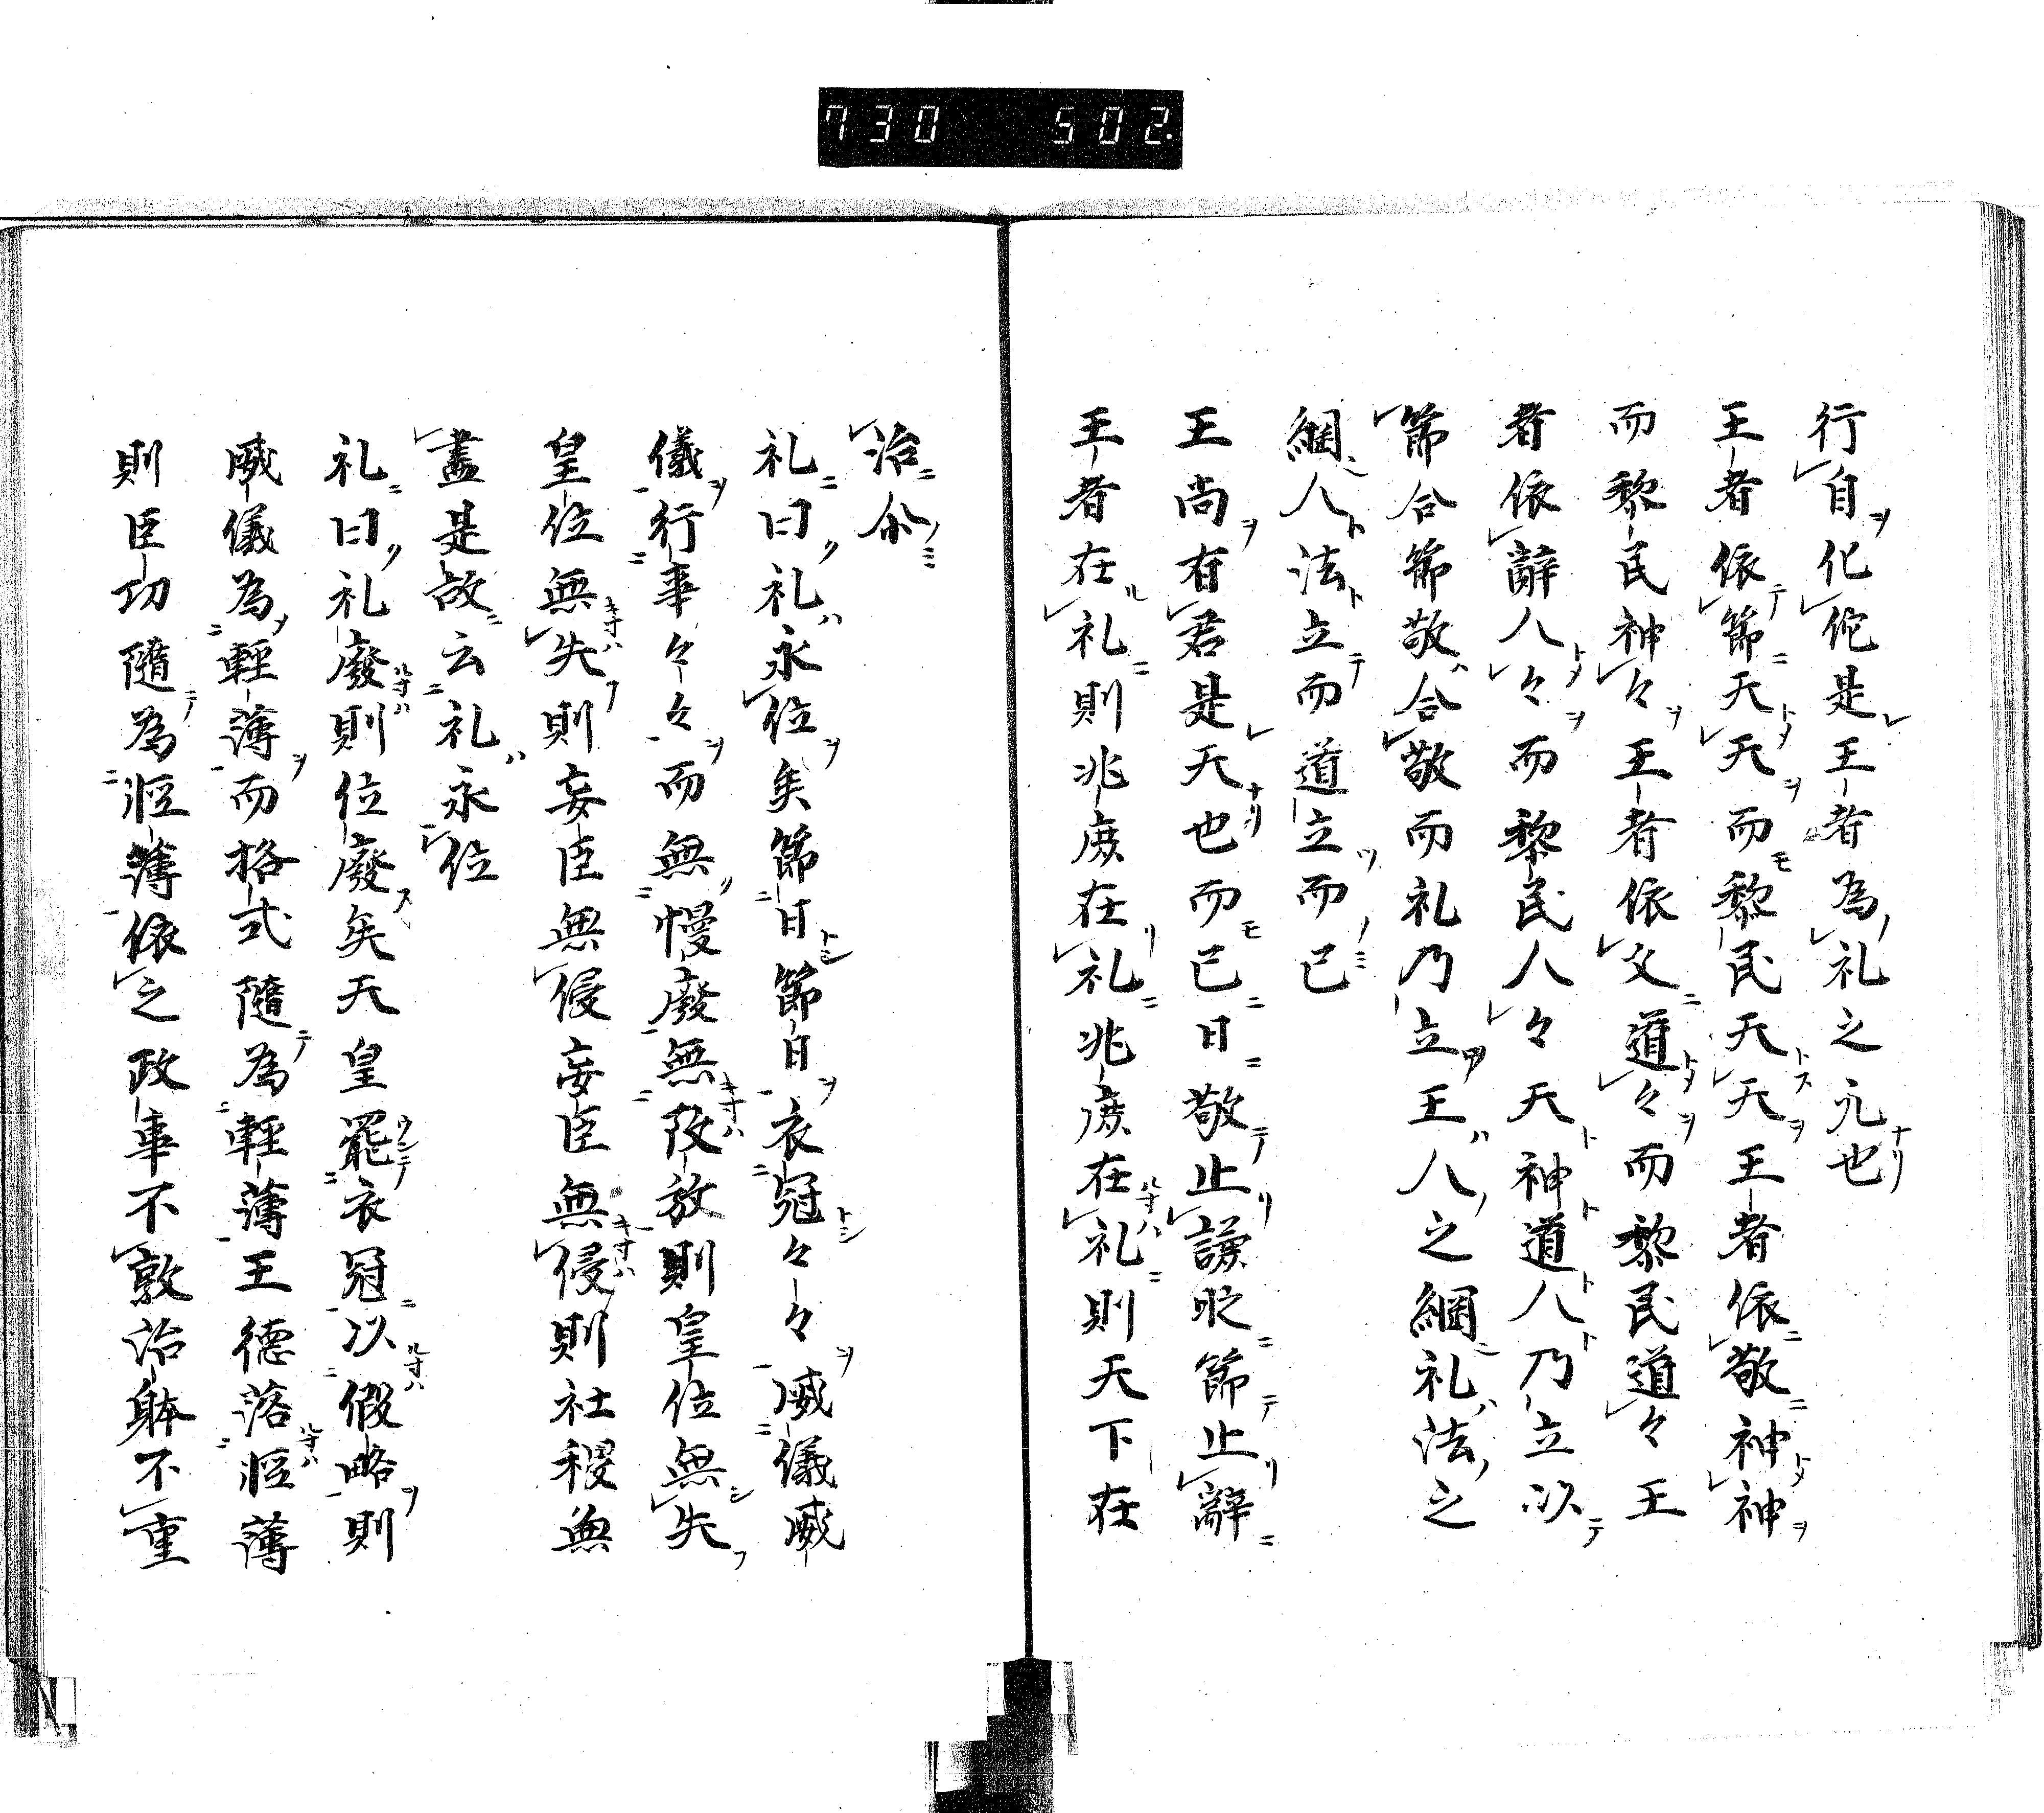 730 502.
行自化佗是王者為礼之元也
王者依節天天而黎民天天王者依敬神神
而黎民神々王者依文道々而黎民道々王
者依辭人々而黎民人々天神道人乃立以
節合節敬合敬而礼乃立王人之綱礼法之
綱人法立而道立而已
王尚右君是天也而已日敬止謙昣節止辭
王者在礼則兆庶在礼兆庶在礼則天下在
治尒
礼曰礼永位矣節日節日衣冠々々威儀威
儀行事々々而無慢廢無改放則皇位無失
皇位無失則妄臣無侵妄臣無侵則社稷無
盡是故云礼永位
礼曰礼廢則位廢矣天皇罷衣冠以假略則
威儀為輕薄而格式隨為輕薄王德落淫薄
則臣功隨為淫薄依之政事不敦治躰不重